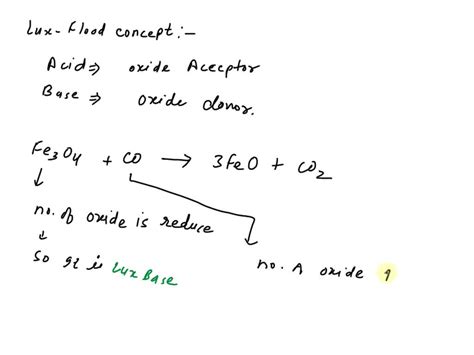 Lux-Flood concept:-
Acid ⇒ oxide Aceeptor
Base ⇒ oxide donor.
Fe3O4 + CO → 3FeO + CO2
↓
no. of oxide is reduce
↓
so it is Lux Base
no. of oxide